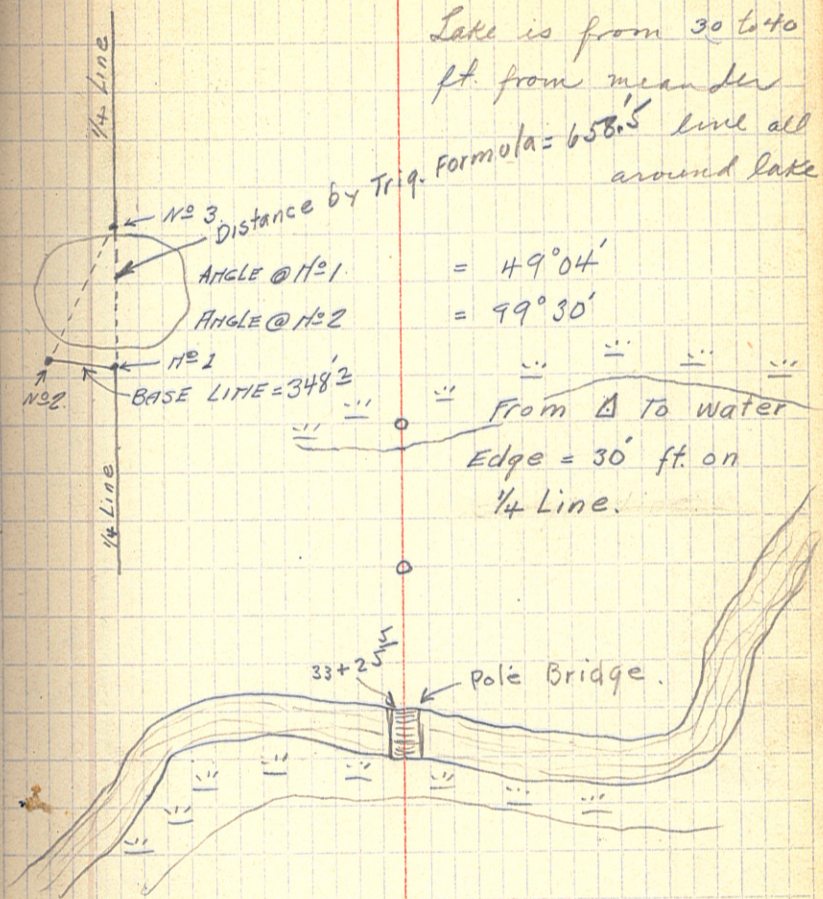 Lake is from 30 to 40
ft. from meander
line all
around lake
Distance by Trig. Formula = 658.'5
1/4 Line
Nº 3
ANGLE @ Nº 1 = 49° 04'
ANGLE @ Nº 2 = 99° 30'
Nº 1
Nº 2
BASE LINE = 348'2
From △ To water
Edge = 30' ft. on
1/4 Line.
1/4 Line
33+25 5
Pole Bridge.